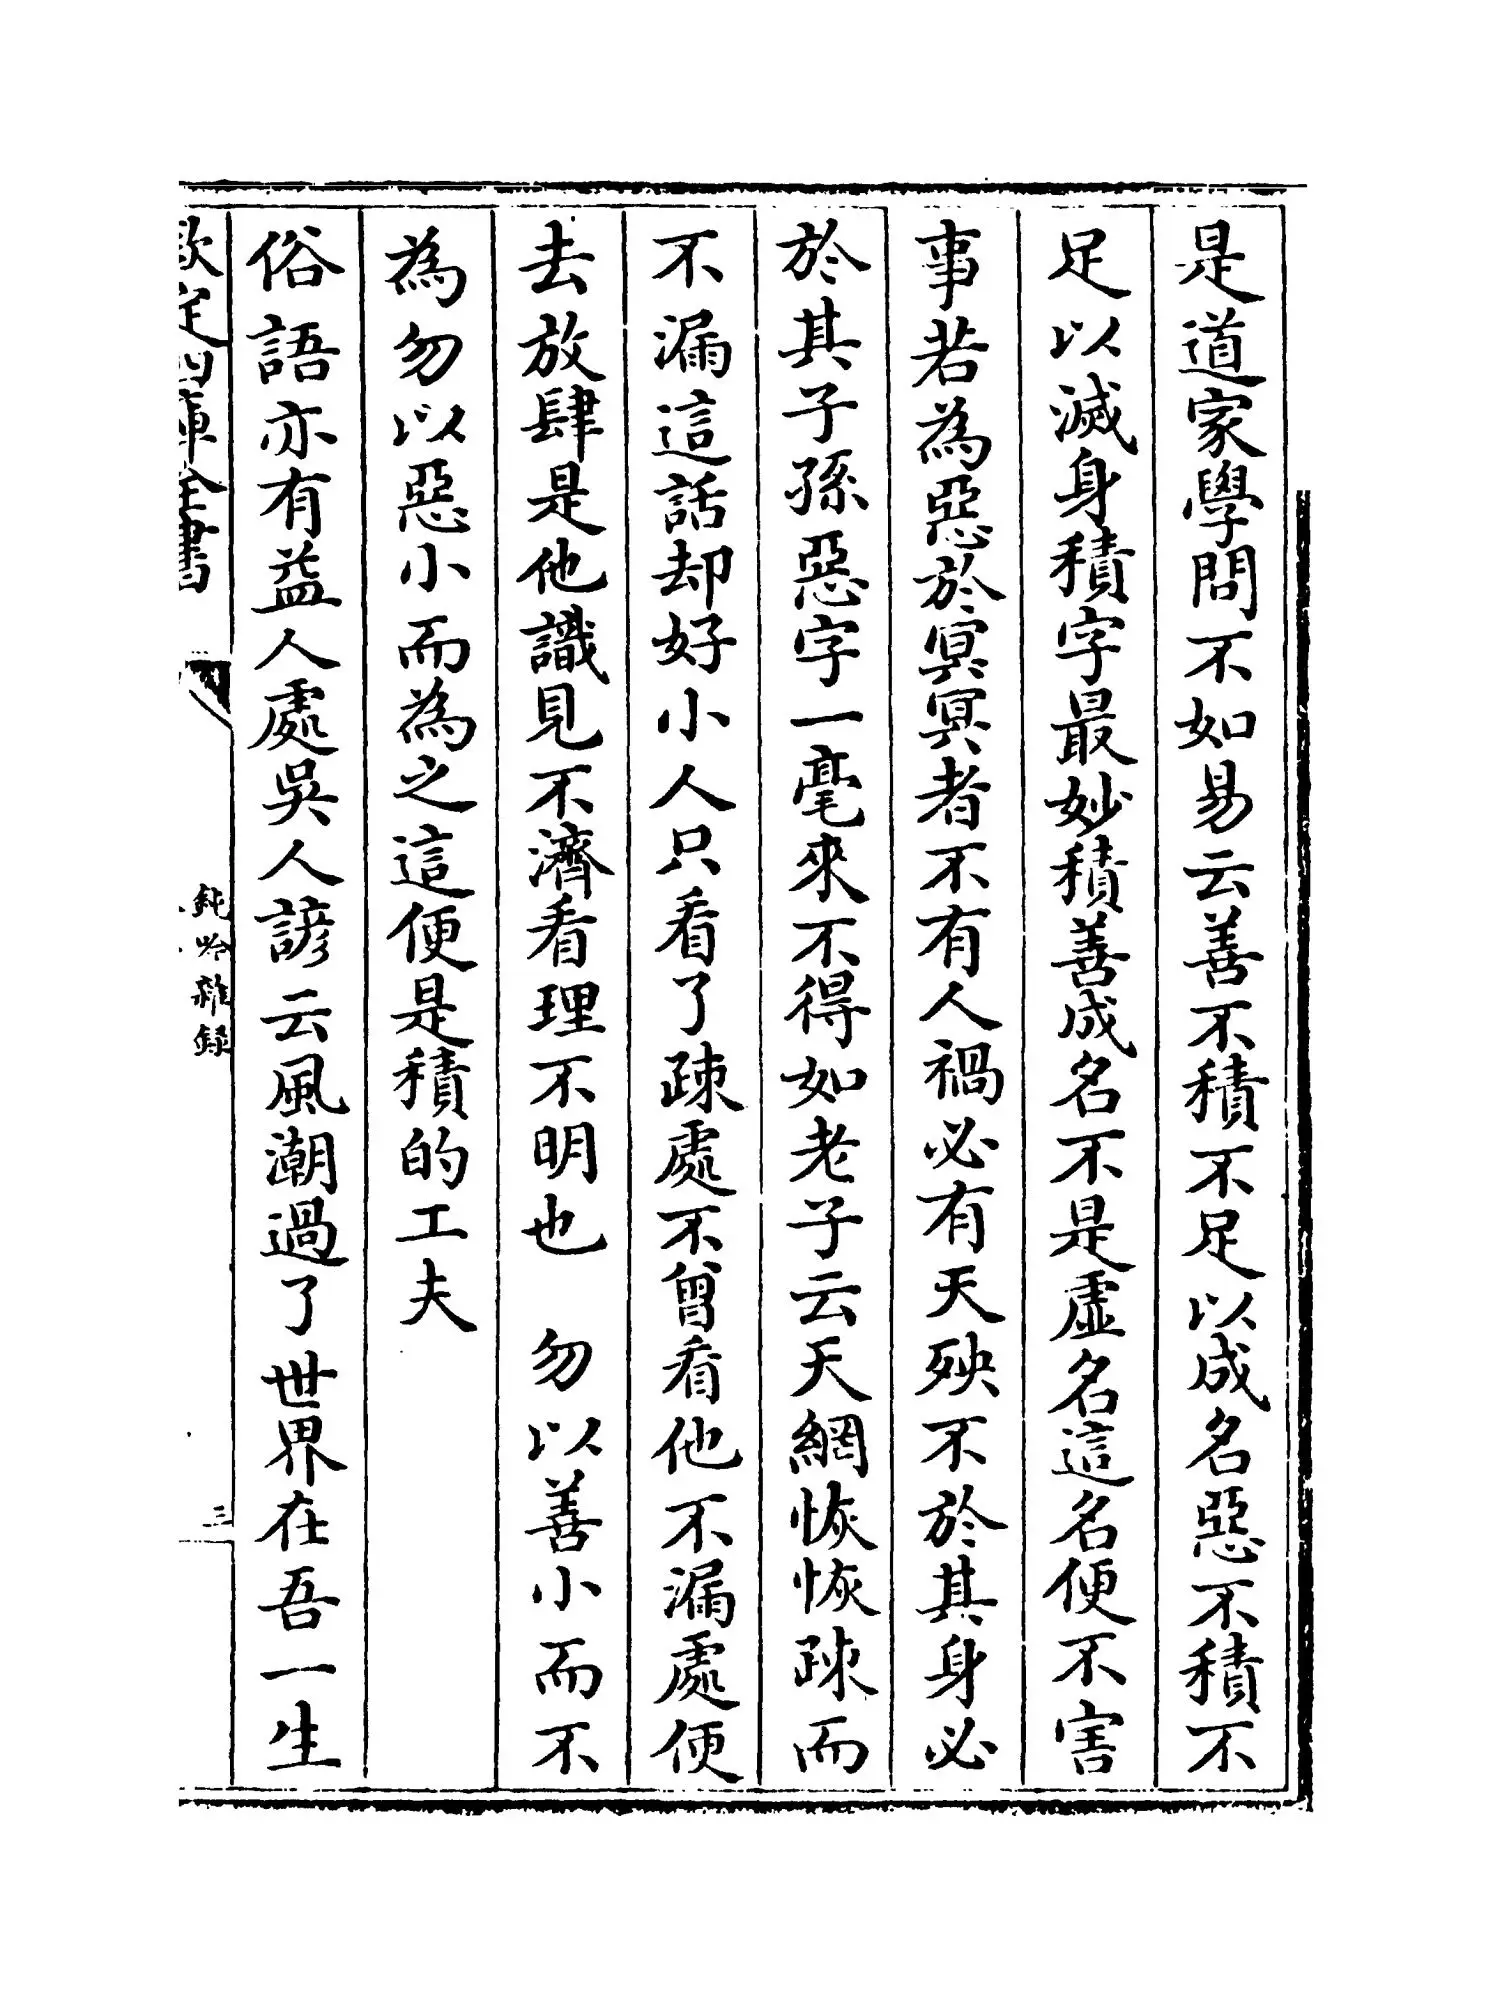 是道家學問不如易云善不積不足以成名惡不積不
足以滅身積字最妙積善成名不是虛名這名便不害
事若為惡於冥冥者不有人禍必有天殃不於其身必
於其子孫惡字一毫來不得如老子云天網恢恢疎而
不漏這話却好小人只看了疎處不曾看他不漏處便
去放肆是他識見不濟看理不明也　勿以善小而不
為勿以惡小而為之這便是積的工夫
俗語亦有益人處吳人諺云風潮過了世界在吾一生
欽定四庫全書
鈍吟雜録
三